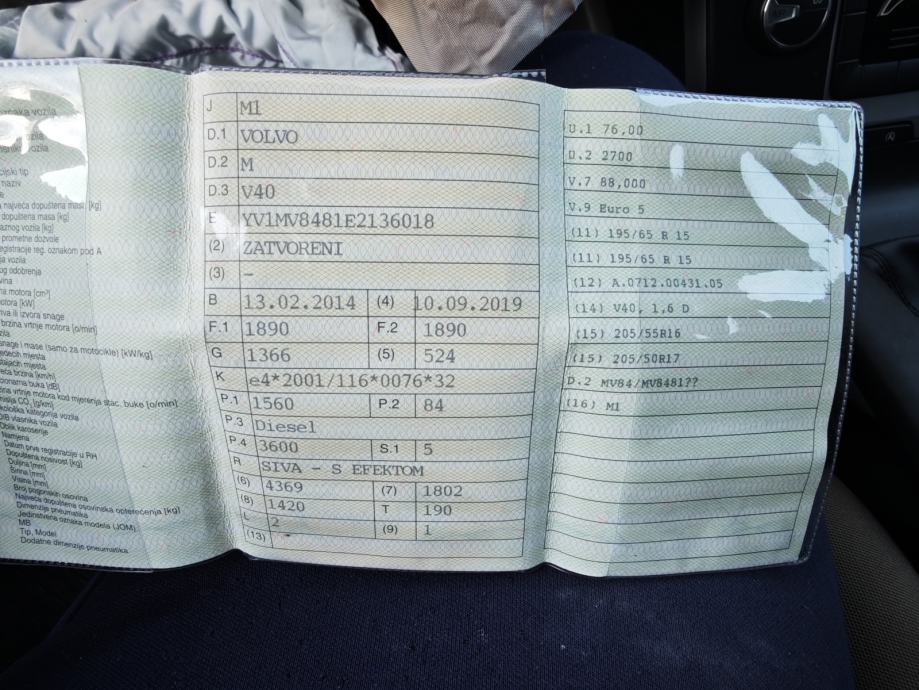 vozila
cijski tip
naziv
najveća dopuštena masa [kg]
dopuštena masa [kg]
prometne dozvole
registracije reg. oznakom pod A
vozila
odobrenja
motora [cm³]
motora [kW]
ili izvora snage
brzina vrtnje motora [o/min]
snage i mase (samo za motocikle) [kW/kg]
mjesta
mjesta
brzina [km/h]
buka [dB]
vrtnje motora kod mjerenja stac. buke [o/min]
CO₂ [g/km]
kategorija vozila
OIB vlasnika vozila
Oblik karoserije
Namjena
Datum prve registracije u RH
Dopuštena nosivost [kg]
Duljina [mm]
Širina [mm]
Visina [mm]
Broj pogonskih osovina
Najveće dopuštena osovinska opterećenja [kg]
Dimenzije pneumatika
Jedinstvena oznaka modela (JOM)
MB
Tip, Model
Dodatne dimenzije pneumatika
J M1
D.1 VOLVO
D.2 M
D.3 V40
E YV1MV8481E2136018
(2) ZATVORENI
(3) –
B 13.02.2014 (4) 10.09.2019
F.1 1890 F.2 1890
G 1366 (5) 524
K e4*2001/116*0076*32
P.1 1560 P.2 84
P.3 Diesel
P.4 3600 S.1 5
R SIVA - S EFEKTOM
(6) 4369 (7) 1802
(8) 1420 T 190
L 2 (9) 1
(13) -
U.1 76,00
U.2 2700
V.7 88,000
V.9 Euro 5
(11) 195/65 R 15
(11) 195/65 R 15
(12) A.0712.00431.05
(14) V40, 1,6 D
(15) 205/55R16
(15) 205/50R17
D.2 MV84/MV8481??
(16) M1